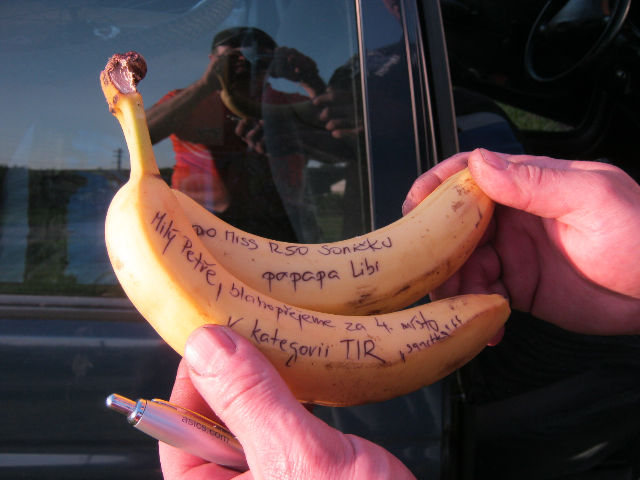 DO MISS RSO Soničku
papapa Libi
Milý Petře,
blahopřejeme za 4. místo
V kategorii TIR,
asics.com